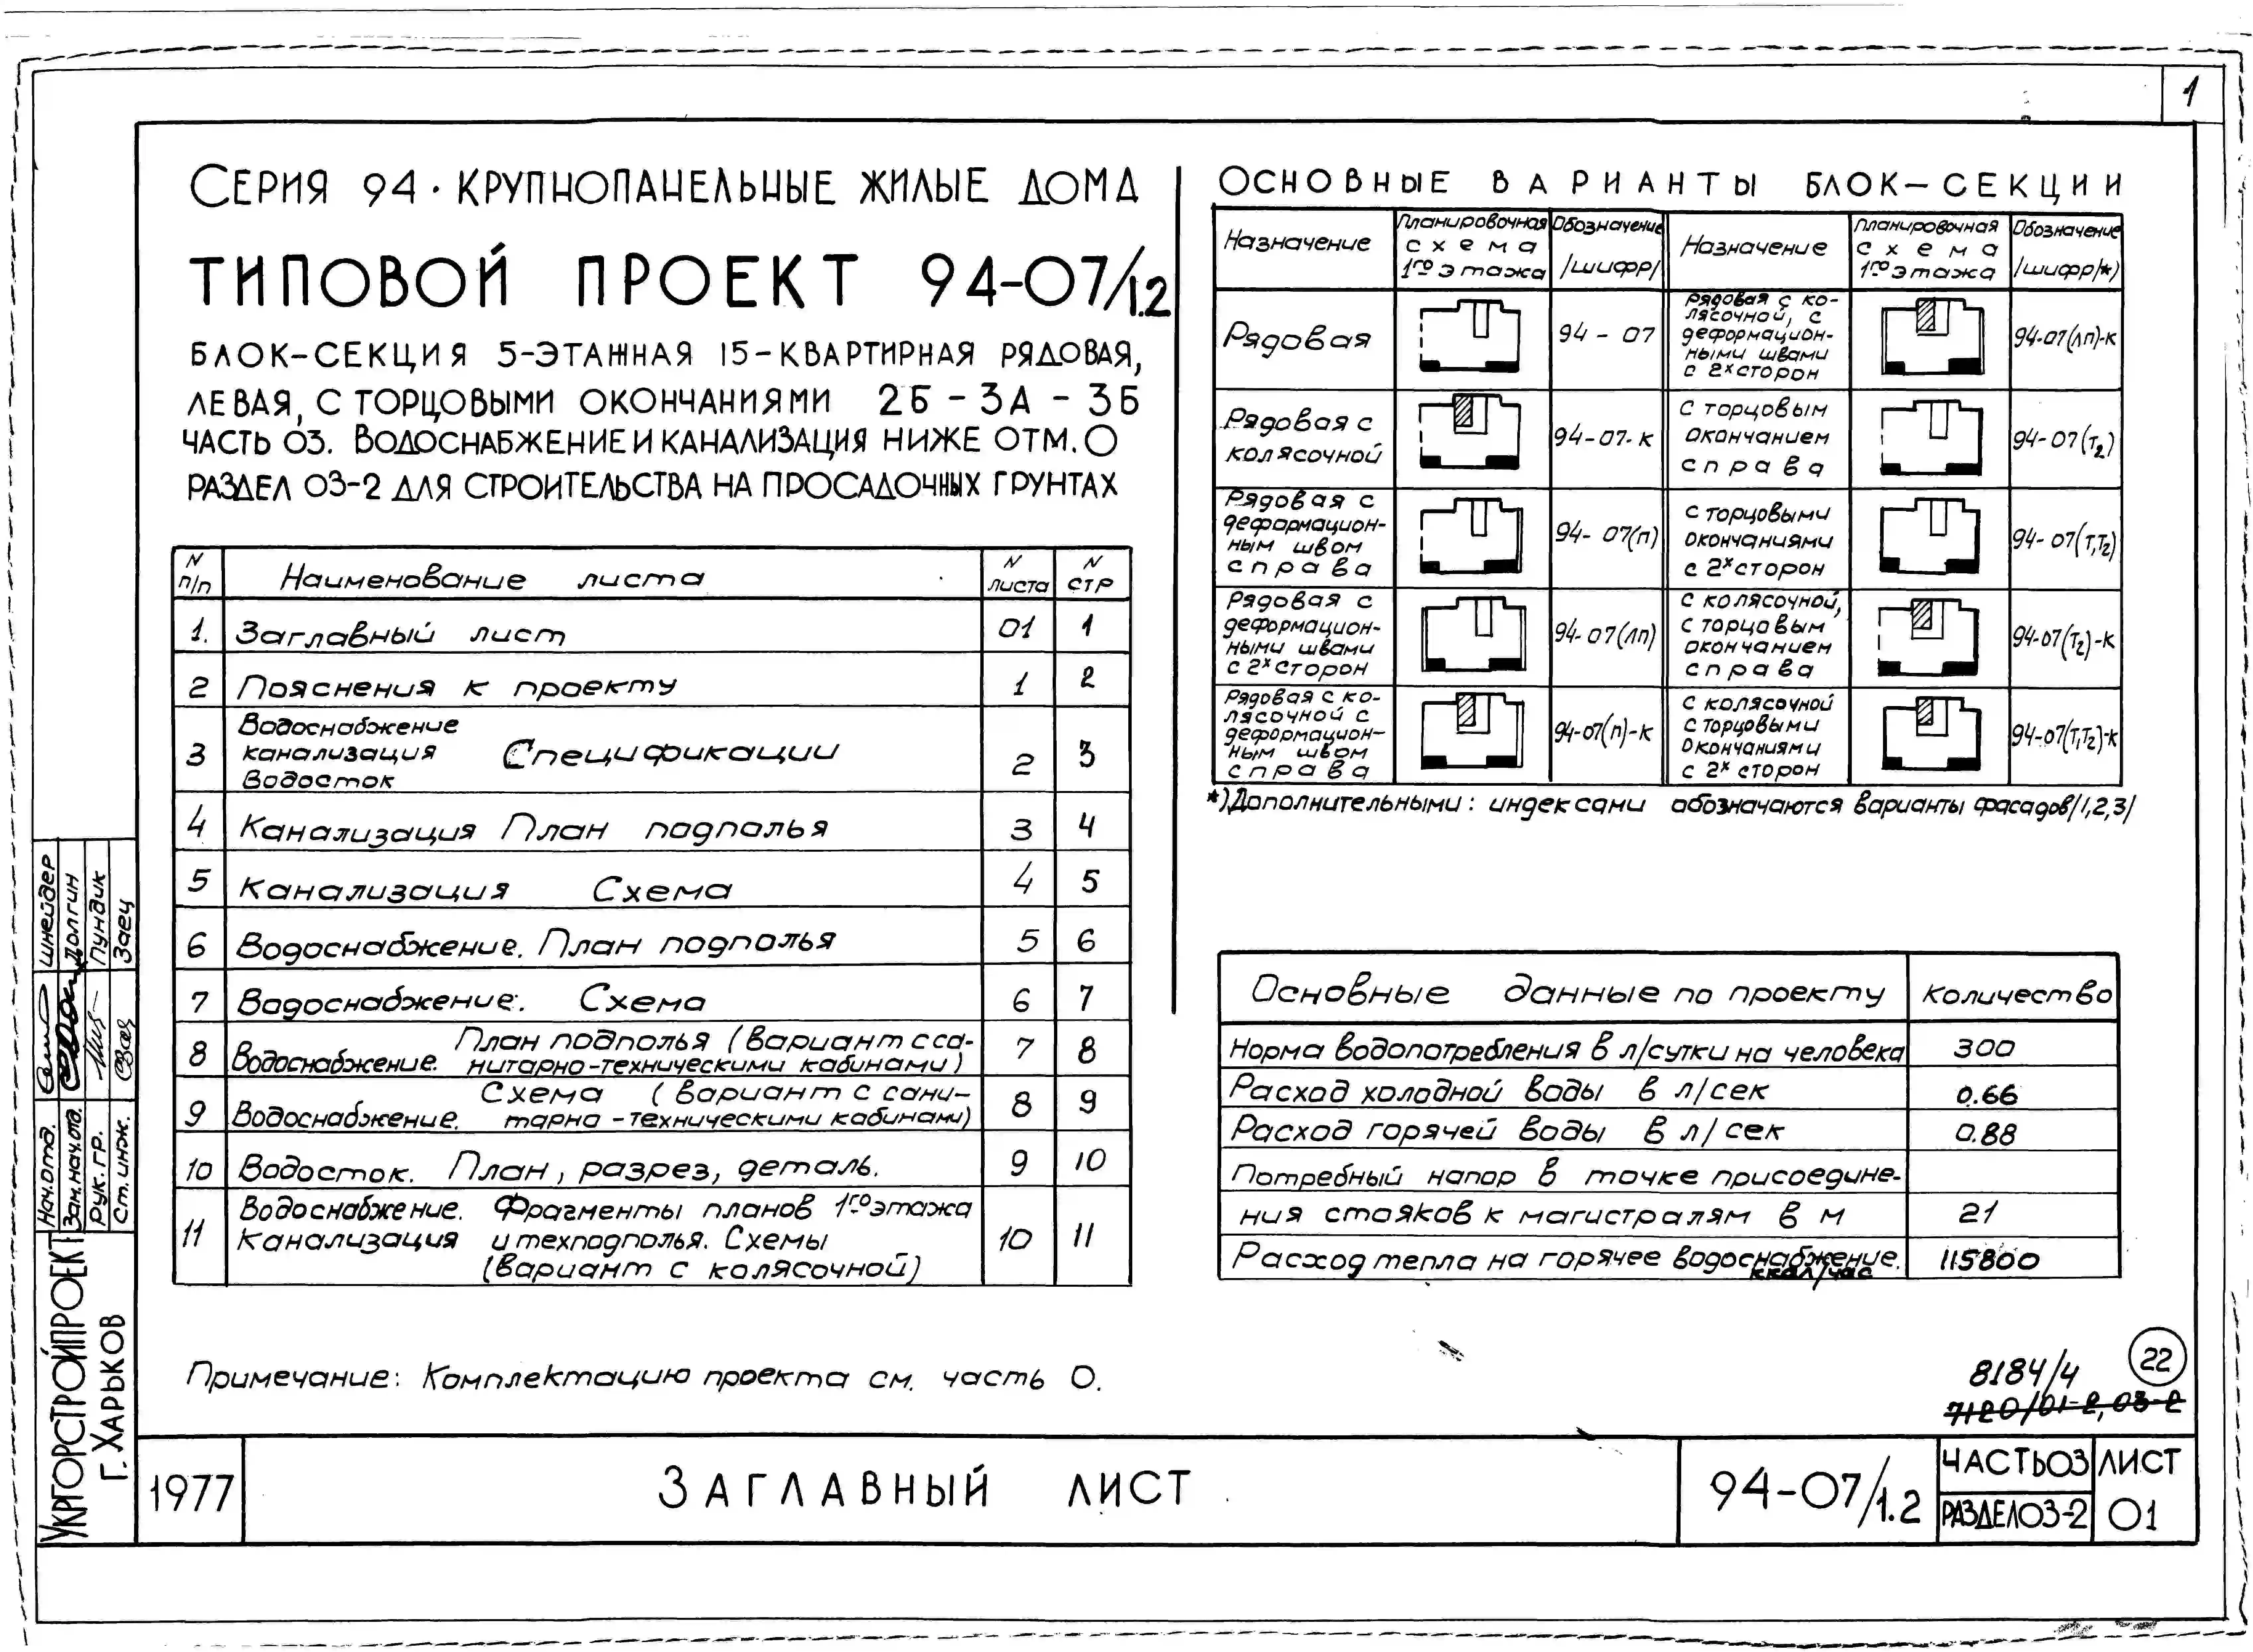 1
СЕРИЯ 94 · КРУПНОПАНЕЛЬНЫЕ ЖИЛЫЕ ДОМА
ТИПОВОЙ ПРОЕКТ 94-07/1.2
БЛОК-СЕКЦИЯ 5-ЭТАЖНАЯ 15-КВАРТИРНАЯ РЯДОВАЯ,
ЛЕВАЯ, С ТОРЦОВЫМИ ОКОНЧАНИЯМИ 2Б - 3А - 3Б
ЧАСТЬ 03. ВОДОСНАБЖЕНИЕ И КАНАЛИЗАЦИЯ НИЖЕ ОТМ. 0
РАЗДЕЛ 03-2 ДЛЯ СТРОИТЕЛЬСТВА НА ПРОСАДОЧНЫХ ГРУНТАХ
N п/п Наименование листа N листа N стр
1. Заглавный лист 01 1
2 Пояснения к проекту 1 2
3 Водоснабжение канализация водосток Спецификации 2 3
4 Канализация План подполья 3 4
5 Канализация Схема 4 5
6 Водоснабжение. План подполья 5 6
7 Водоснабжение. Схема 6 7
8 Водоснабжение. План подполья (вариант с са-
нитарно-техническими кабинами) 7 8
9 Водоснабжение. Схема (вариант с сани-
тарно-техническими кабинами) 8 9
10 Водосток. План, разрез, деталь. 9 10
11 Водоснабжение. Канализация Фрагменты планов 1го этажа
и техподполья. Схемы
(вариант с колясочной) 10 11
Примечание: Комплектацию проекта см. часть 0.
ОСНОВНЫЕ ВАРИАНТЫ БЛОК-СЕКЦИИ
Назначение Планировочная схема 1го этажа Обозначение /шифр/ Назначение Планировочная схема 1го этажа Обозначение /шифр/*)
Рядовая 94 - 07
Рядовая с колясочной 94-07-к
Рядовая с деформацион-
ным швом справа 94-07(п)
Рядовая с деформацион-
ными швами с 2х сторон 94-07(лп)
Рядовая с ко-
лясочной с деформацион-
ным швом справа 94-07(п)-к
Рядовая с ко-
лясочной, с деформацион-
ными швами с 2х сторон 94-07(лп)-к
С торцовым окончанием справа 94-07(т2)
С торцовыми окончаниями с 2х сторон 94-07(т1т2)
С колясочной, с торцовым окончанием справа 94-07(т2)-к
С колясочной с торцовыми окончаниями с 2х сторон 94-07(т1т2)-к
*) Дополнительными: индексами обозначаются варианты фасадов/1,2,3/
Основные данные по проекту Количество
Норма водопотребления в л/сутки на человека 300
Расход холодной воды в л/сек 0.66
Расход горячей воды в л/сек 0.88
Потребный напор в точке присоедине-
ния стояков к магистралям в м 21
Расход тепла на горячее водоснабжение. ккал/час 115800
22
8184/4
7120/01-2, 03-2
Нач. отд. Шнейдер
Зам. нач. отд. Долгин
Рук. гр. Пундик
Ст. инж. Заец
УКРГОРСТРОЙПРОЕКТ
Г. ХАРЬКОВ
1977
ЗАГЛАВНЫЙ ЛИСТ
94-07/1.2
ЧАСТЬ 03
РАЗДЕЛ 03-2
ЛИСТ
01